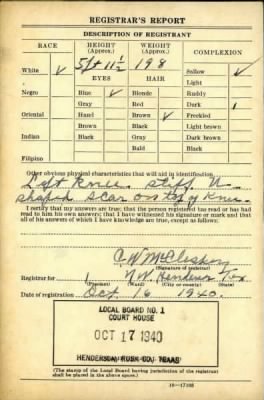 REGISTRAR'S REPORT
DESCRIPTION OF REGISTRANT
RACE HEIGHT (Approx.) WEIGHT (Approx.) COMPLEXION
White ✓ 5 ft 11 1/2 198 Sallow ✓
EYES HAIR Light
Negro Blue ✓ Blonde Ruddy
Gray Red Dark
Oriental Hazel Brown ✓ Freckled
Brown Black Light brown
Indian Black Gray Dark brown
Bald Black
Filipino
Other obvious physical characteristics that will aid in identification
Left Knee stiff U
shaped scar on top Knee
I certify that my answers are true; that the person registered has read or has had
read to him his own answers; that I have witnessed his signature or mark and that
all of his answers of which I have knowledge are true, except as follows:
(Signature of registrar)
Registrar for 1 N.W. Henderson Tex
(Precinct) (Ward) (City or county) (State)
Date of registration Oct. 16 1940.
LOCAL BOARD NO. 1
COURT HOUSE
OCT 17 1940
HENDERSON, RUSK CO., TEXAS
(The stamp of the Local Board having jurisdiction of the registrant
shall be placed in the above space.)